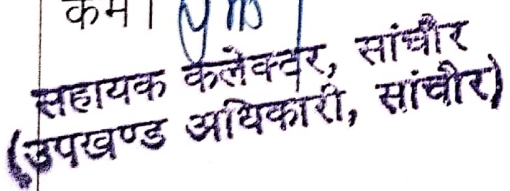 कम।
सहायक कलेक्टर, सांचौर
(उपखण्ड अधिकारी, सांचौर)